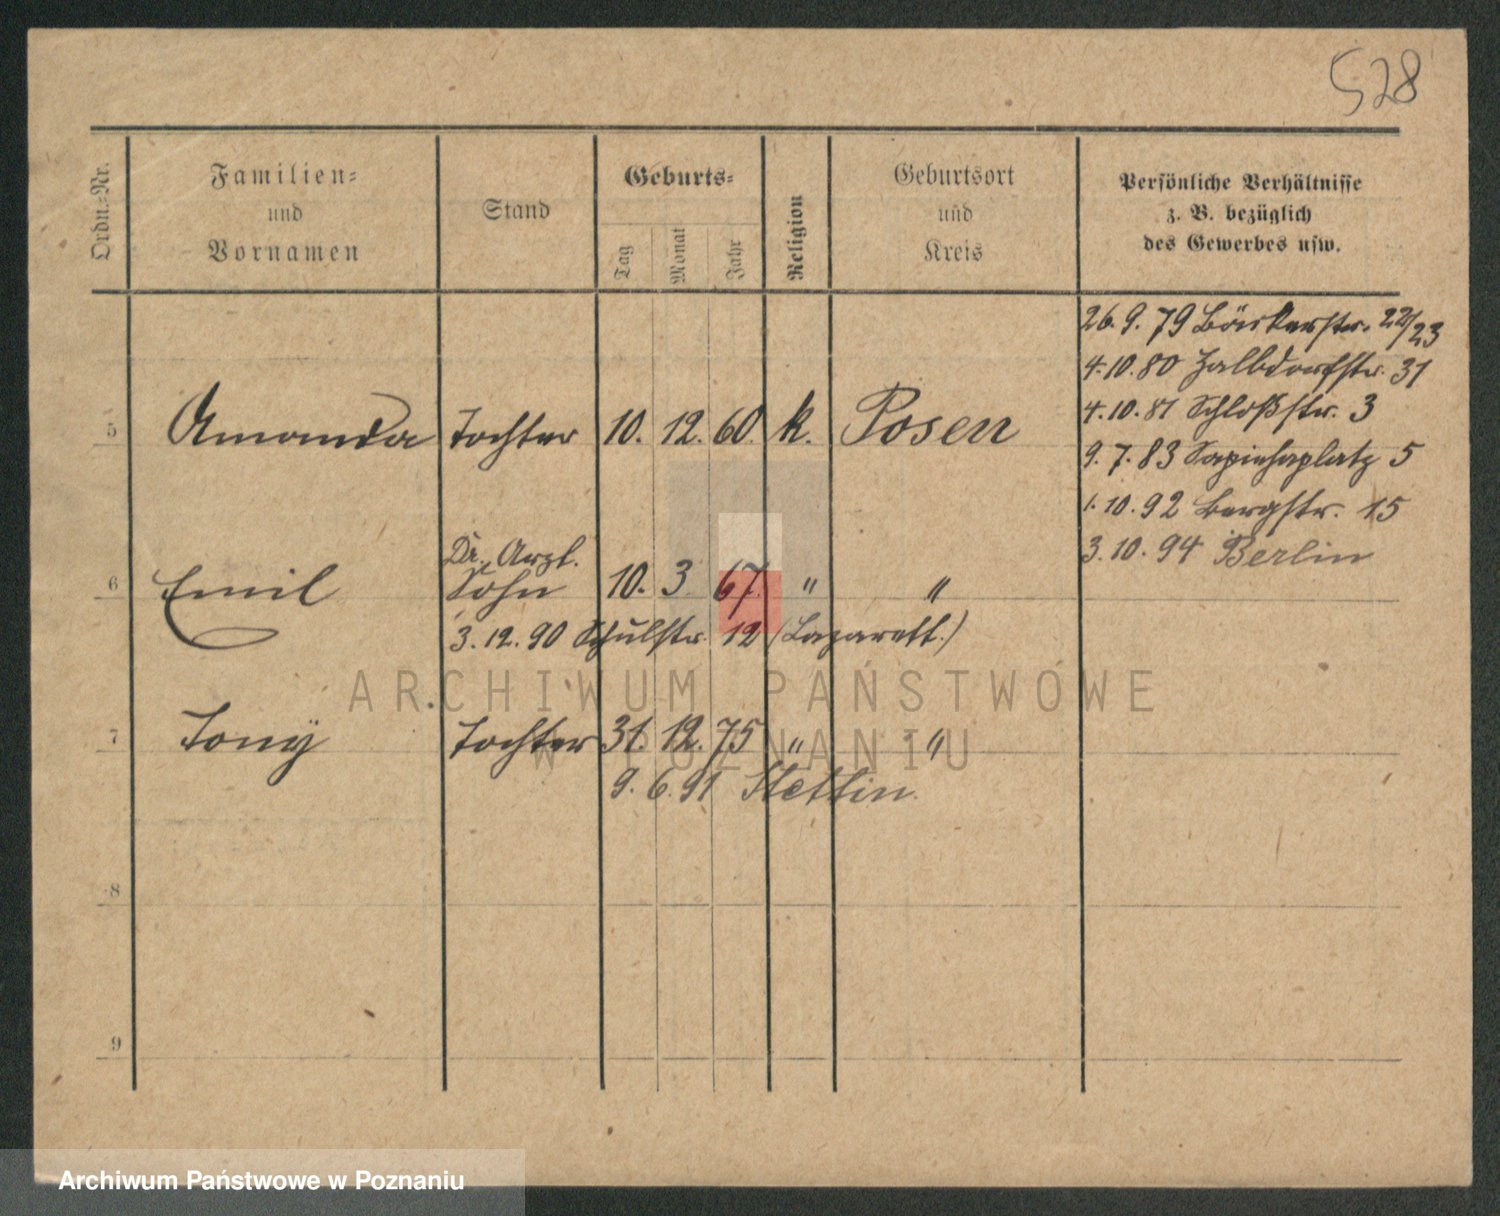 528
Ordn.-Nr.
Familien-
und
Vornamen
Stand
Geburts-
Tag
Monat
Jahr
Religion
Geburtsort
und
Kreis
Persönliche Verhältnisse
z. B. bezüglich
des Gewerbes usw.
26. 9. 79 Bäckerstr. 22/23
4. 10. 80 Halbdorfstr. 31
4. 10. 81 Schloßstr. 3
5 Amanda Tochter 10. 12. 60. k. Posen
9. 7. 83 Sapiehaplatz 5
1. 10. 92 Bergstr. 15
3. 10. 94 Berlin
Dr., Arzt.
6 Emil Sohn 10. 3. 67. " "
3. 12. 90 Schulstr. 12 (Lazarett.)
ARCHIWUM PAŃSTWOWE
7 Tony Tochter 31. 12. 75 " "
W POZNANIU
9. 6. 91 Stettin.
8
9
Archiwum Państwowe w Poznaniu